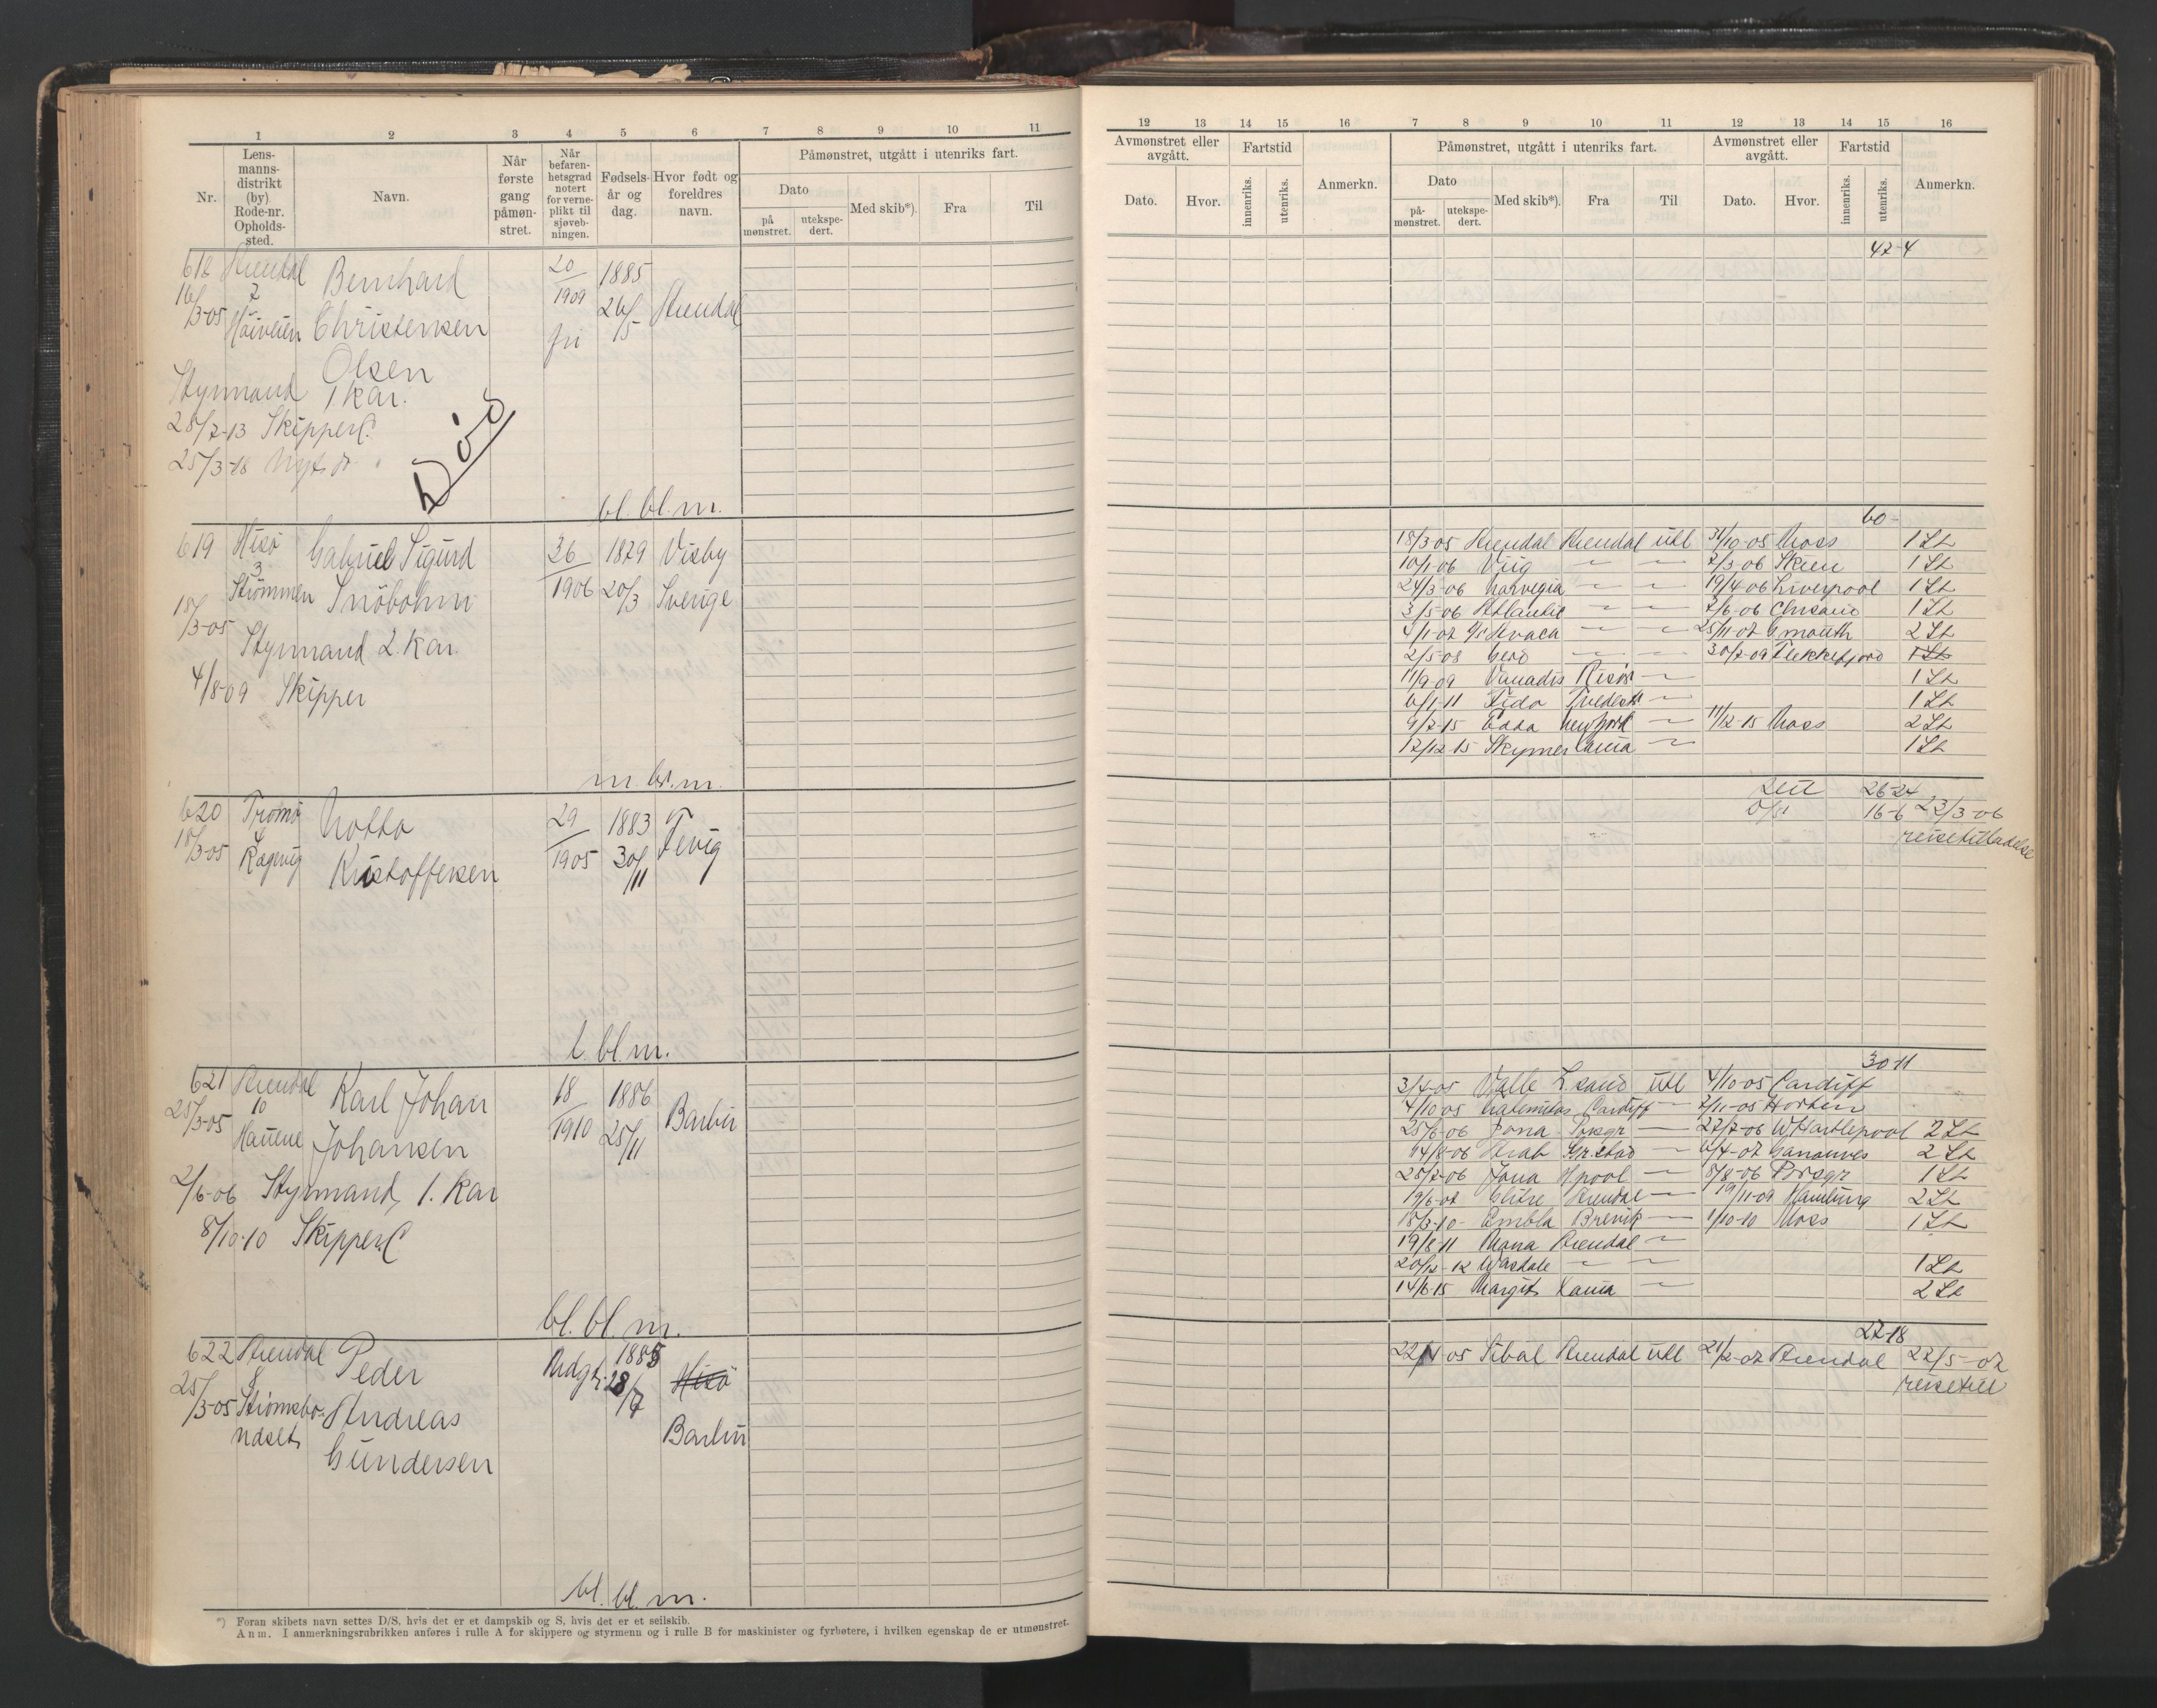 1 2 3 4 5 6 7 8 9 10 11
Nr.
Lens-
manns-
distrikt
(by)
Rode-nr.
Opholds-
sted.
Navn.
Når
første
gang
påmøn-
stret.
Når
befaren-
hetsgrad
notert
for verne-
plikt til
sjøveb-
ningen.
Fødsels-
år og
dag.
Hvor født og
foreldres
navn.
Påmønstret, utgått i utenriks fart.
Dato
på
mønstret.
utekspe-
dert.
Med skib*).
Fra
Til
Arendal
7
Bernhard
Christensen
Olsen
16/3-05
Høiveien
20/1909
fri
1885
26/5
Arendal
Styrmand 1 kar.
28/7-13 Skipper C.
25/3-18
Død
bl. bl. m.
619
Hisø
3
Strømmen
18/3-05
Gabriel Sigurd
Snöbohm
36/1906
1879
20/3
Visby
Sverige
Styrmand 2. kar.
4/8-09 Skipper
620
Tromø
4
18/3-05
Kristoffersen
29/1905
1883
30/11
Fevig
l. bl. m.
621
Arendal
10
25/3-05
Karl Johan
Johansen
18/1910
1886
25/11
Barbu
2/6-06 Styrmand, 1. kar
8/10-10 Skipper C
bl. bl. m.
622
Arendal
8
25/3-05
Strømsbo-
ndset
Peder
Andreas
Gundersen
1885
28/7
Hisø
Barbu
bl. bl. m.
*) Foran skibets navn settes D/S, hvis det er et dampskib og S, hvis det er et seilskib.
Anm. I anmerkningsrubrikken anføres i rulle A for skippere og styrmenn og i rulle B for maskinister og fyrbøtere, i hvilken egenskap de er utmønstret.
12 13 14 15 16 7 8 9 10 11 12 13 14 15 16
Avmønstret eller
avgått.
Dato.
Hvor.
Fartstid
innenriks.
utenriks.
Anmerkn.
Påmønstret, utgått i utenriks fart.
Dato
på-
mønstret.
utekspe-
dert.
Med skib*).
Fra
Til
Avmønstret eller
avgått.
Dato.
Hvor.
Fartstid
innenriks.
utenriks.
Anmerkn.
47-4
60-
18/3-05 Arendal Arendal utl 31/10-05 Moss 1 St
10/1-06 — — 7/3-06 Skien 1 St
24/3-06 Norvegia — — 19/4-06 Liverpool 1 St
3/5-06 Atlantic — — 7/6-06 Chrsand 1 St
4/1-07 — — 25/11-07 Gmouth 2 St
2/5-08 Hero — — 30/7-09 Flekkefjord 1 St
11/9-09 Vanadis Risør — 1 St
6/1-11 Fido Tvedestr — 1 St
9/7-15 Edda — 11/12-15 Moss 2 St
12/12-15 — 1 St
26-24
16-6 23/3-06
reisetilladelse
30-11
3/4-05 Valle L.sand utl 4/10-05 Cardiff
4/10-05 Cardiff — 2/11-05 Horten
25/6-06 Jona Porsgr — 27/7-06 W Hartlepool 2 St
14/8-06 Arab Gr.stad — 6/4-07 2 St
28/7-06 Jona Hpool — 8/8-06 Porsgr 1 St
19/6-07 Glitre Arendal — 19/11-09 Hamburg 2 St
18/3-10 Embla Brevik — 1/10-10 Moss 1 St
19/8-11 Arendal —
20/12-12 Wasdale — — 1 St
14/6-15 Margit — 2 St
27-18
22/4 05 Sibal Arendal utl 21/2-07 Arendal 22/5-07
reisetill